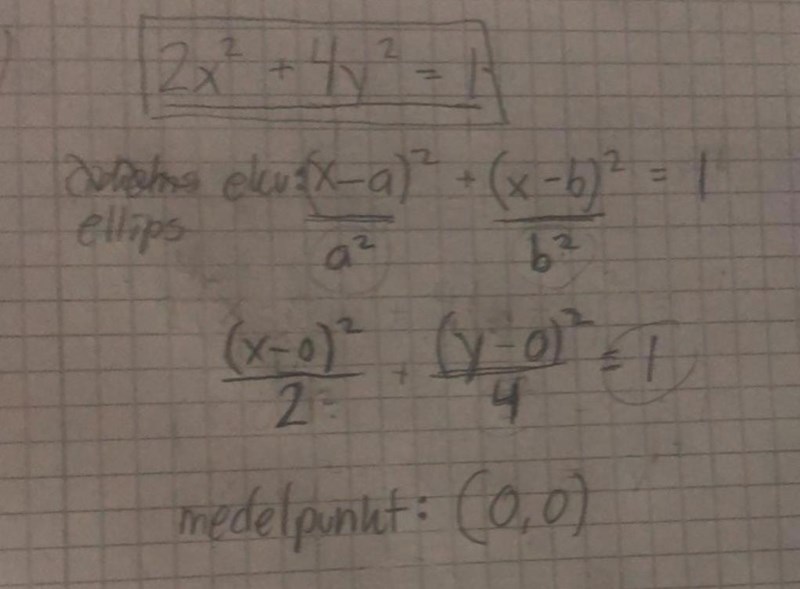 2x² + 4y² = 1
ekv: (x-a)²/a² + (x-b)²/b² = 1
ellips
(x-0)²/2 + (y-0)²/4 = 1
medelpunkt: (0,0)